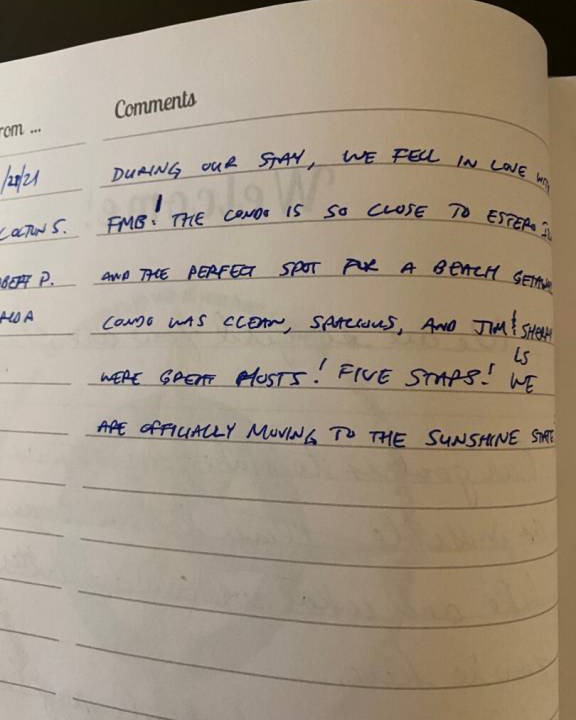 Comments
rom ...
/28/21 DURING OUR STAY, WE FELL IN LOVE
COLTON S. FMB! THE CONDO IS SO CLOSE TO ESTERO
BERT P. AND THE PERFECT SPOT FOR A BEACH
CONDO WAS CLEAN, SPACIOUS, AND JIM &
WERE GREAT HOSTS! FIVE STARS! WE
ARE OFFICIALLY MOVING TO THE SUNSHINE STATE